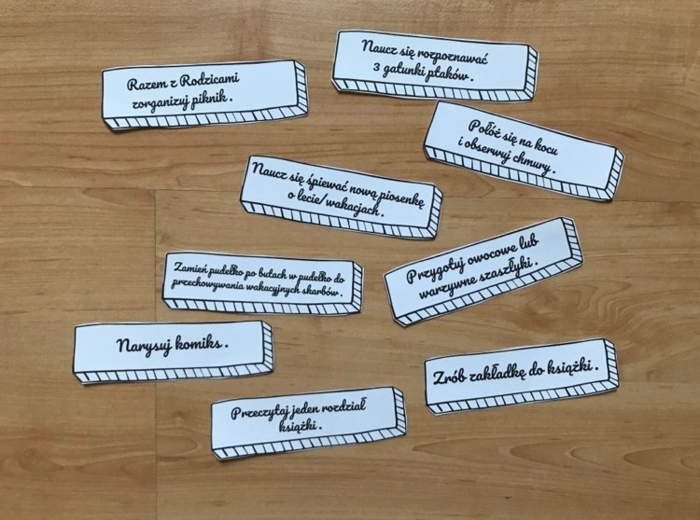 Naucz się rozpoznawać
3 gatunki ptaków.
Razem z Rodzicami
zorganizuj piknik.
Połóż się na kocu
i obserwuj chmury.
Naucz się śpiewać nową piosenkę
o lecie/wakacjach.
Przygotuj owocowe lub
warzywne szaszłyki.
Zamień pudełko po butach w pudełko do
przechowywania wakacyjnych skarbów.
Narysuj komiks.
Zrób zakładkę do książki.
Przeczytaj jeden rozdział
książki.